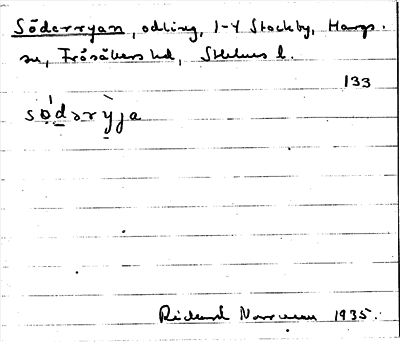 Söderryan, odling, 1-4 Stockby, Hargs
sn, Frösåkers hd, Sthlms l.
133
sǿ̣d̲ərỳ̲ja
Rickard Norrman 1935.